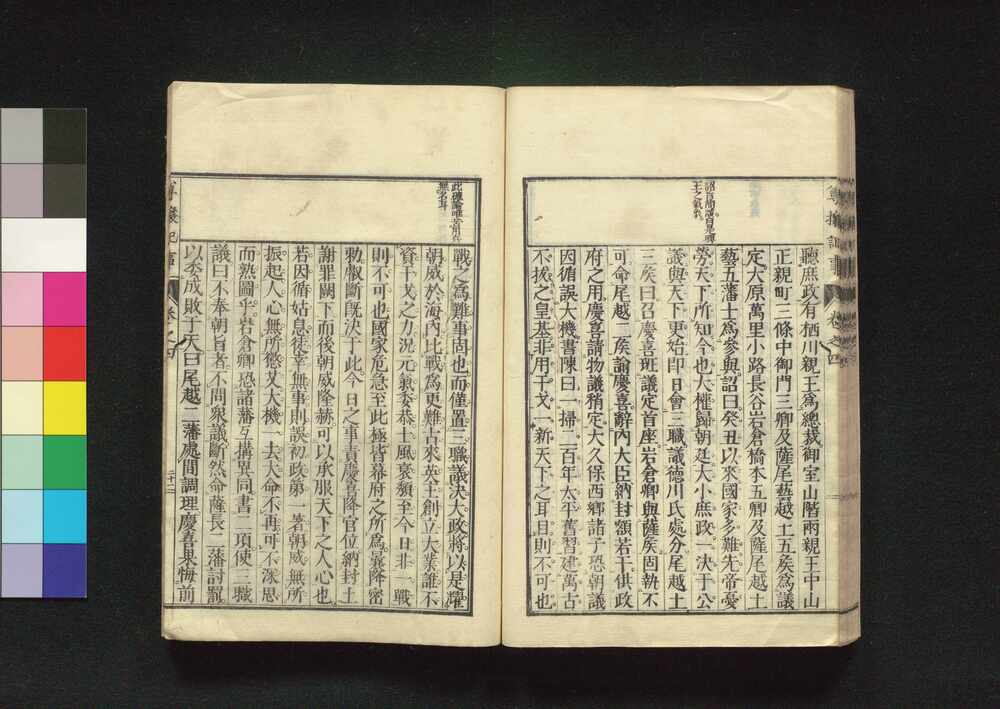 聽庶政有栖川親王爲總裁御室山階兩親王中山
正親町三條中御門三卿及薩尾藝越土五矦爲議
定大原萬里小路長谷岩倉橋本五卿及薩尾越土
藝五藩士爲參與詔曰癸丑以來國家多難先帝憂
勞天下所知今也大權歸朝廷大小庶政一決于公
議與天下更始卽日會三職議德川氏處分尾越土
三矦曰召慶喜班議定首座岩倉卿與薩矦固執不
可命尾越二矦諭慶喜辭內大臣納封額若干供政
府之用慶喜請物議稍定大久保西鄕諸子恐朝議
因循誤大機書陳曰一掃二百年太平舊習建萬古
不拔之皇基非用干戈一新天下之耳目則不可也
戰之爲難事固也而僅置三職議決大政將以是耀
朝威於海內比戰爲更難古來英主創立大業誰不
資干戈之力況元氣委恭士風衰頽至今日非一戰
則不可也國家危急至此極皆幕府之所爲曩降密
勅叡斷既決于此今日之事責慶喜降官位納封土
謝罪闕下而後朝威隆赫可以承服天下之人心也
若因循姑息徒幸無事則誤初政第一著朝威無所
振起人心無所懲艾大機一去大命不再可不深思
而熟圖乎岩倉卿恐諸藩互搆異同書二項使三職
議曰不奉朝旨者不問衆議斷然命薩長二藩討罰
以委成敗于天曰尾越二藩處間調理慶喜果悔前
二十二